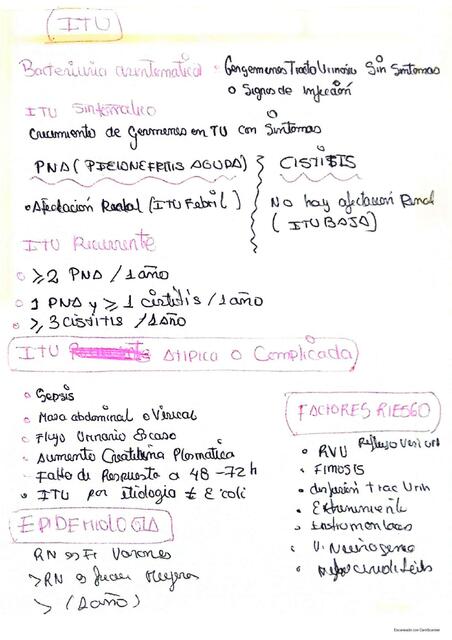 ITU
Bacteriuria asintomatica ° Gengermenes Tracto Urinario Sin Sintomas
o Signos de Infección
ITU Sintomatico
Crecimiento de Germenes en TU con Sintomas
PNA (PIELONEFRITIS AGUDA)
CISTITIS
• Afectación Renal (ITU Febril)
No hay afectación Renal
(ITU BAJA)
ITU Recurrente
≥2 PNA / 1 año
1 PNA y ≥ 1 cistitis / 1 año
≥ 3 CISTITIS / 1 Año
ITU Atipica o Complicada
Sepsis
Masa abdominal o Vesical
Flujo Urinario Escaso
Aumento Creatinina Plasmatica
Falta de Respuesta a 48-72h
ITU por etiologia ≠ E coli
FACTORES RIESGO
RVU Reflujo
FIMOSIS
Trac Urin
Estreñimiento
V. Neurogena
EPIDEMIOLOGIA
RN Varones
>RN Mujeres
> (1 año)
Escaneado con CamScanner